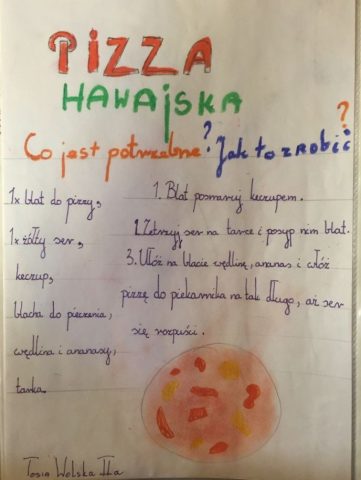 PIZZA
HAWAJSKA
Co jest potrzebne? Jak to zrobić?
1x blat do pizzy,
1x żółty ser,
keczup,
blacha do pieczenia,
wędlina i ananasy,
tarka.
1. Blat posmaruj keczupem.
2. Zetrzyj ser na tarce i posyp nim blat.
3. Ułóż na blacie wędlinę, ananas i włóż
pizzę do piekarnika na tak długo, aż ser
się rozpuści.
Tosia Wolska IIa